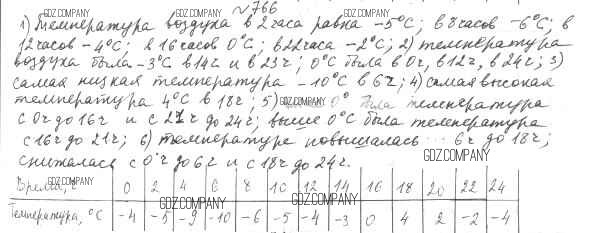 №766
GDZ.COMPANY GDZ.COMPANY
1) Температура воздуха в 2 часа равна -5°С; в 8 часов -6°С; в
12 часов -4°С; в 16 часов 0°С; в 22 часа -2°С; 2) температура
воздуха была -3°С в 14 ч и в 23 ч; 0°С была в 0 ч, в 12 ч, в 24 ч; 3)
самая низкая температура -10°С в 6 ч; 4) самая высокая
температура 4°С в 18 ч; 5) 0° была температура
GDZ.COMPANY
с 0 ч до 16 ч и с 21 ч до 24 ч; выше 0°С была температура
с 16 ч до 21 ч; 6) температура повышалась 6 ч до 18 ч;
снижалась с 0 ч до 6 ч и с 18 ч до 24 ч.
GDZ.COMPANY
GDZ.COMPANY
Время, ч 0 2 4 6 8 10 12 14 16 18 20 22 24
GDZ.COMPANY GDZ.COMPANY
Температура, °С -4 -5 -9 -10 -6 -5 -4 -3 0 4 2 -2 -4